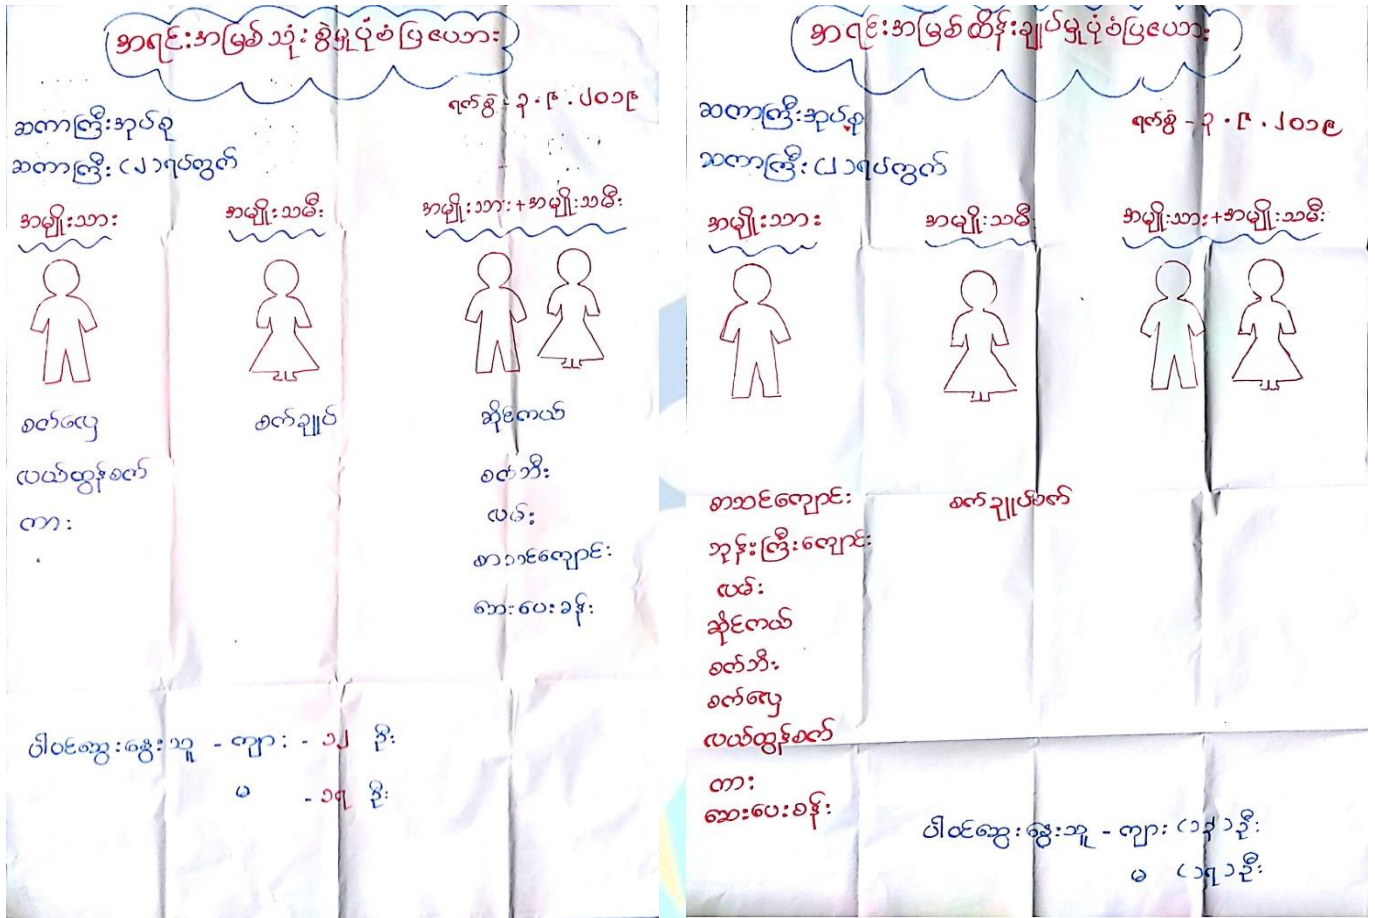 အရင်းအမြစ်သုံးစွဲမှုပုံစံပြဇယား
ရက်စွဲ - ၃.၉.၂၀၁၉
ဆကာကြီးအုပ်စု
ဆကာကြီး(၂)ရပ်ကွက်
အမျိုးသား အမျိုးသမီး အမျိုးသား+အမျိုးသမီး
စက်လှေ စက်ချုပ် ဆိုင်ကယ်
လယ်ထွန်စက် စက်ဘီး
ကား လမ်း
စာသင်ကျောင်း
ဆေးပေးခန်း
ပါဝင်ဆွေးနွေးသူ - ကျား - ၁၂ ဦး
မ - ၁၇ ဦး
အရင်းအမြစ်ထိန်းချုပ်မှုပုံစံပြဇယား
ဆကာကြီးအုပ်စု
ရက်စွဲ - ၃.၉.၂၀၁၉
ဆကာကြီး(၂)ရပ်ကွက်
အမျိုးသား အမျိုးသမီး အမျိုးသား+အမျိုးသမီး
စာသင်ကျောင်း စက်ချုပ်စက်
ဘုန်းကြီးကျောင်း
လမ်း
ဆိုင်ကယ်
စက်ဘီး
စက်လှေ
လယ်ထွန်စက်
ကား
ဆေးပေးခန်း
ပါဝင်ဆွေးနွေးသူ - ကျား (၁၃)ဦး
မ (၁၇)ဦး